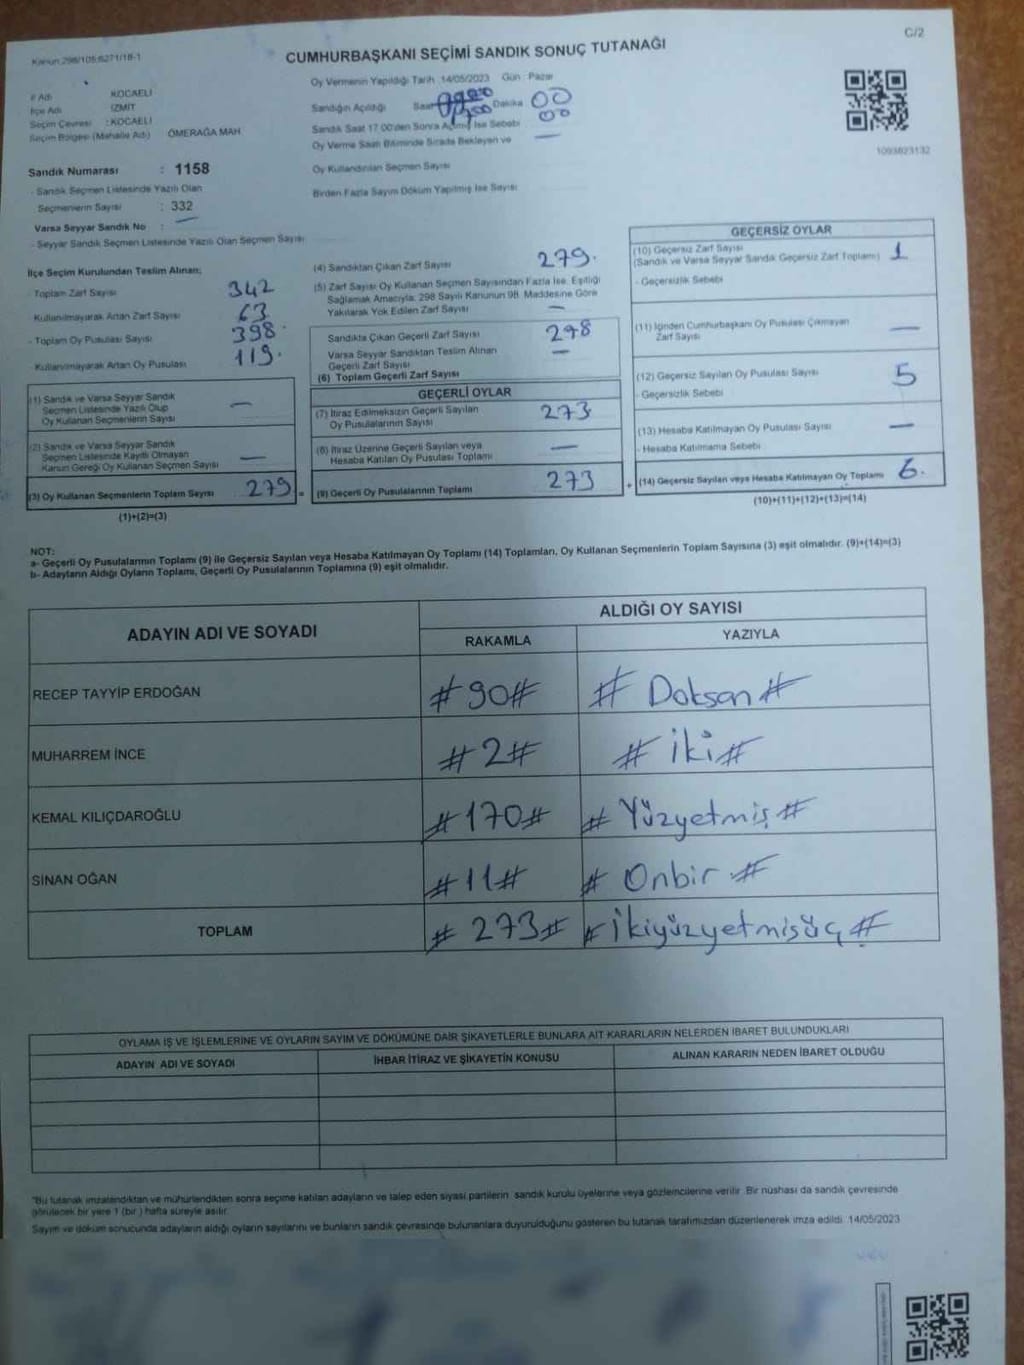 C/2
Kanun 298/105;6271/18-1
CUMHURBAŞKANI SEÇİMİ SANDIK SONUÇ TUTANAĞI
Oy Vermenin Yapıldığı Tarih 14/05/2023 Gün : Pazar
İl Adı : KOCAELİ
İlçe Adı : İZMİT
Seçim Çevresi : KOCAELİ
Seçim Bölgesi (Mahalle Adı) ÖMERAĞA MAH
Sandığın Açıldığı Saat Dakika 00
00
Sandık Saat 17.00'den Sonra Açılmış İse Sebebi
Oy Verme Saati Bitiminde Sırada Bekleyen ve —
Oy Kullandırılan Seçmen Sayısı
Birden Fazla Sayım Döküm Yapılmış İse Sayısı
1093823132
Sandık Numarası : 1158
- Sandık Seçmen Listesinde Yazılı Olan
Seçmenlerin Sayısı : 332
Varsa Seyyar Sandık No : —
- Seyyar Sandık Seçmen Listesinde Yazılı Olan Seçmen Sayısı
İlçe Seçim Kurulundan Teslim Alınan;
- Toplam Zarf Sayısı 342
Kullanılmayarak Artan Zarf Sayısı 63
- Toplam Oy Pusulası Sayısı 398
- Kullanılmayarak Artan Oy Pusulası 119.
(1) Sandık ve Varsa Seyyar Sandık
Seçmen Listesinde Yazılı Olup
Oy Kullanan Seçmenlerin Sayısı —
(2) Sandık ve Varsa Seyyar Sandık
Seçmen Listesinde Kayıtlı Olmayan
Kanun Gereği Oy Kullanan Seçmen Sayısı —
(3) Oy Kullanan Seçmenlerin Toplam Sayısı 279 =
(1)+(2)=(3)
(4) Sandıktan Çıkan Zarf Sayısı 279.
(5) Zarf Sayısı Oy Kullanan Seçmen Sayısından Fazla İse, Eşitliği
Sağlamak Amacıyla; 298 Sayılı Kanunun 98. Maddesine Göre
Yakılarak Yok Edilen Zarf Sayısı —
Sandıkta Çıkan Geçerli Zarf Sayısı 278
Varsa Seyyar Sandıktan Teslim Alınan
Geçerli Zarf Sayısı —
(6) Toplam Geçerli Zarf Sayısı
GEÇERLİ OYLAR
(7) İtiraz Edilmeksizin Geçerli Sayılan
Oy Pusulalarının Sayısı 273
(8) İtiraz Üzerine Geçerli Sayılan veya
Hesaba Katılan Oy Pusulası Toplamı —
(9) Geçerli Oy Pusulalarının Toplamı 273 +
GEÇERSİZ OYLAR
(10) Geçersiz Zarf Sayısı
(Sandık ve Varsa Seyyar Sandık Geçersiz Zarf Toplamı) 1
- Geçersizlik Sebebi
(11) İçinden Cumhurbaşkanı Oy Pusulası Çıkmayan
Zarf Sayısı —
(12) Geçersiz Sayılan Oy Pusulası Sayısı 5
- Geçersizlik Sebebi
(13) Hesaba Katılmayan Oy Pusulası Sayısı —
- Hesaba Katılmama Sebebi
(14) Geçersiz Sayılan veya Hesaba Katılmayan Oy Toplamı 6.
(10)+(11)+(12)+(13)=(14)
NOT:
a- Geçerli Oy Pusulalarının Toplamı (9) ile Geçersiz Sayılan veya Hesaba Katılmayan Oy Toplamı (14) Toplamları, Oy Kullanan Seçmenlerin Toplam Sayısına (3) eşit olmalıdır. (9)+(14)=(3)
b- Adayların Aldığı Oyların Toplamı, Geçerli Oy Pusulalarının Toplamına (9) eşit olmalıdır.
ADAYIN ADI VE SOYADI
ALDIĞI OY SAYISI
RAKAMLA YAZIYLA
RECEP TAYYİP ERDOĞAN #90# # Doksan #
MUHARREM İNCE #2# # İki #
KEMAL KILIÇDAROĞLU #170# # Yüzyetmiş #
SİNAN OĞAN #11# # Onbir #
TOPLAM # 273# # İkiyüzyetmişüç #
OYLAMA İŞ VE İŞLEMLERİNE VE OYLARIN SAYIM VE DÖKÜMÜNE DAİR ŞİKAYETLERLE BUNLARA AİT KARARLARIN NELERDEN İBARET BULUNDUKLARI
ADAYIN ADI VE SOYADI İHBAR İTİRAZ VE ŞİKAYETİN KONUSU ALINAN KARARIN NEDEN İBARET OLDUĞU
"Bu tutanak imzalandıktan ve mühürlendikten sonra seçime katılan adayların ve talep eden siyasi partilerin sandık kurulu üyelerine veya gözlemcilerine verilir. Bir nüshası da sandık çevresinde
görülecek bir yere 1 (bir) hafta süreyle asılır.
Sayım ve döküm sonucunda adayların aldığı oyların sayılarını ve bunların sandık çevresinde bulunanlara duyurulduğunu gösteren bu tutanak tarafımızdan düzenlenerek imza edildi. 14/05/2023